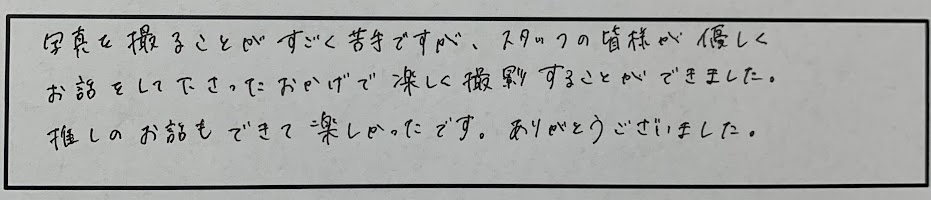 写真を撮ることがすごく苦手ですが、スタッフの皆様が優しく
お話をして下さったおかげで楽しく撮影することができました。
推しのお話もできて楽しかったです。ありがとうございました。